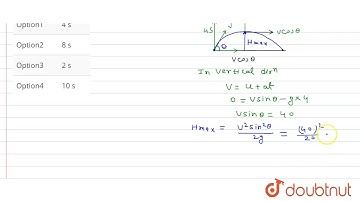 Option1 4 s
Option2 8 s
Option3 2 s
Option4 10 s
4S
V
Hmax
VCosθ
θ
VCosθ
In Vertical dirn
V = u+at
0 = Vsinθ - g×4
Vsinθ = 40
Hmax = V²sin²θ / 2g = (40)² / 2
doubtnut